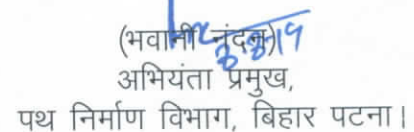 (भवानी नंदन)
अभियंता प्रमुख,
पथ निर्माण विभाग, बिहार पटना।